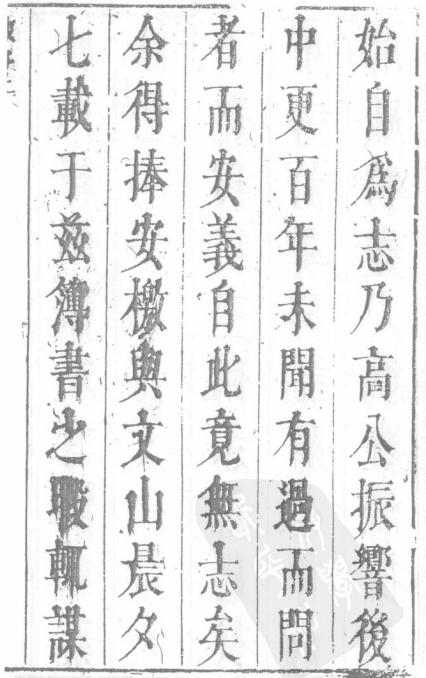 始自爲志乃高公振響後
中更百年未聞有過而問
者而安義自此竟無志矣
余得捧安檄與文山晨夕
七載于兹簿書之暇輒謀